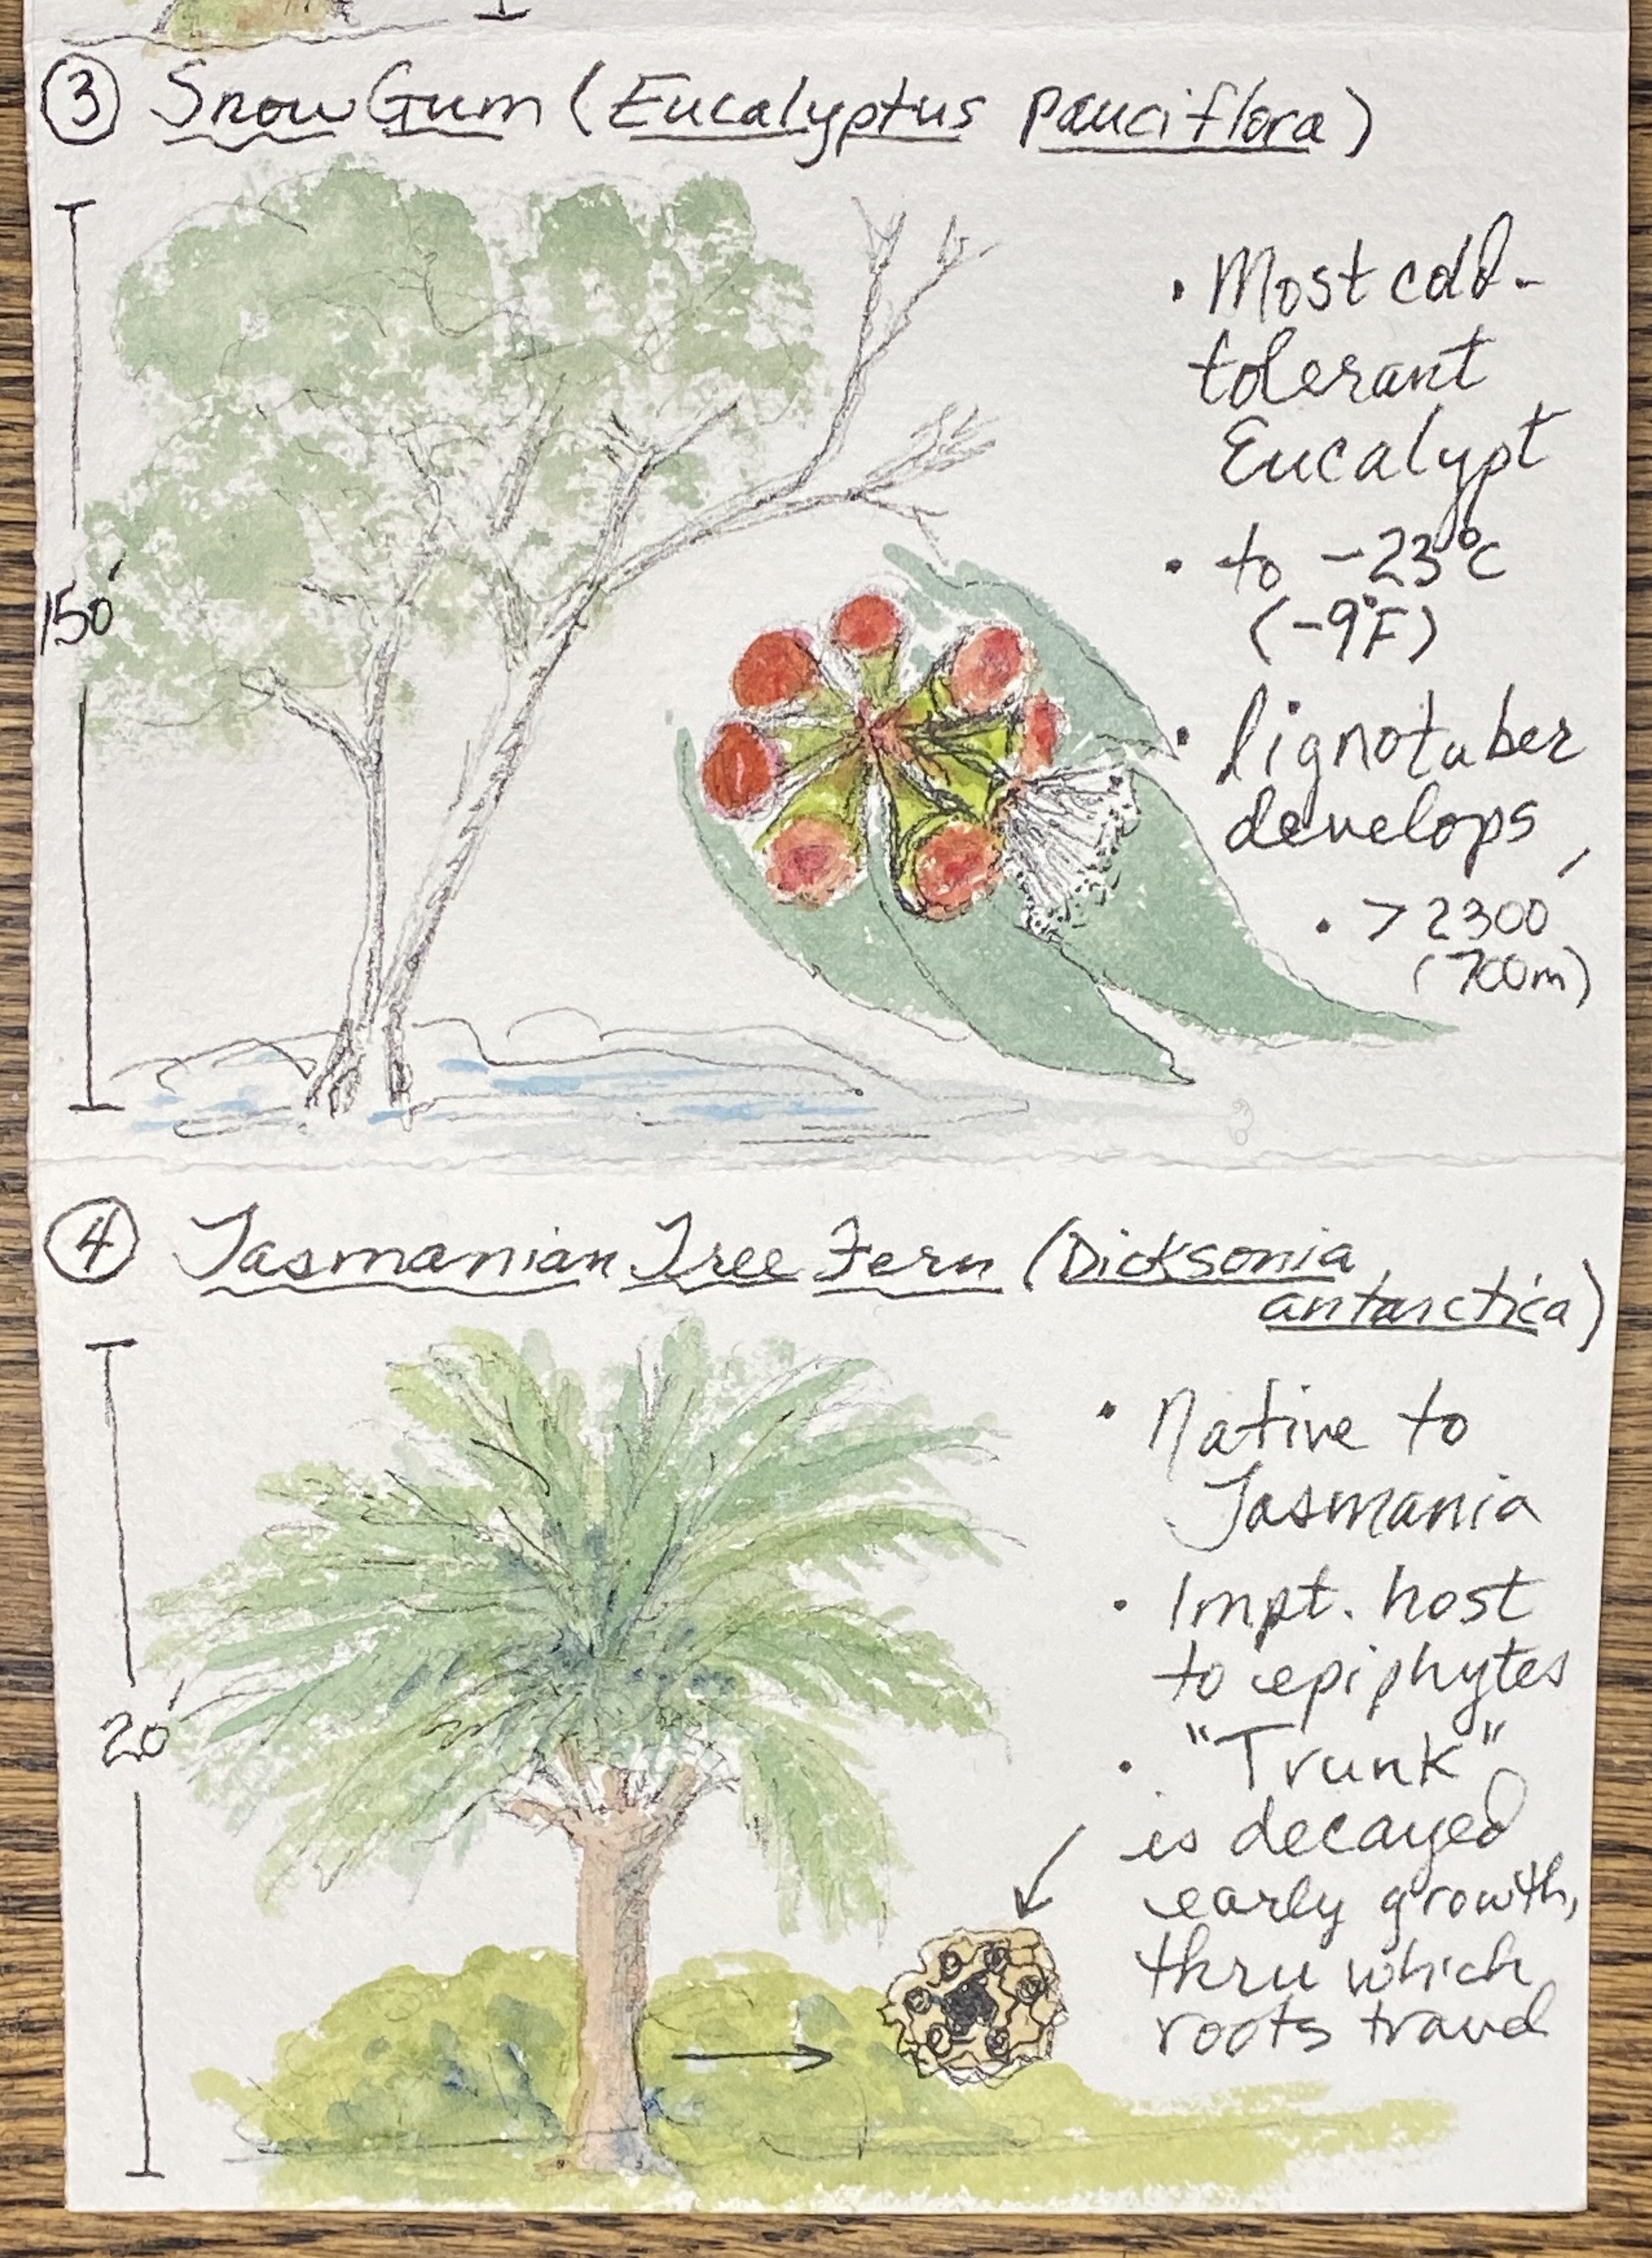 ③ Snow Gum (Eucalyptus pauciflora)
150'
• Most cold-
tolerant
Eucalypt
• to -23°C
(-9°F)
• lignotuber
develops
• > 2300'
(700m)
④ Tasmanian Tree Fern (Dicksonia
antarctica)
20'
• Native to
Tasmania
• Impt. host
to epiphytes
• "Trunk"
is decayed
early growth,
thru which
roots travel